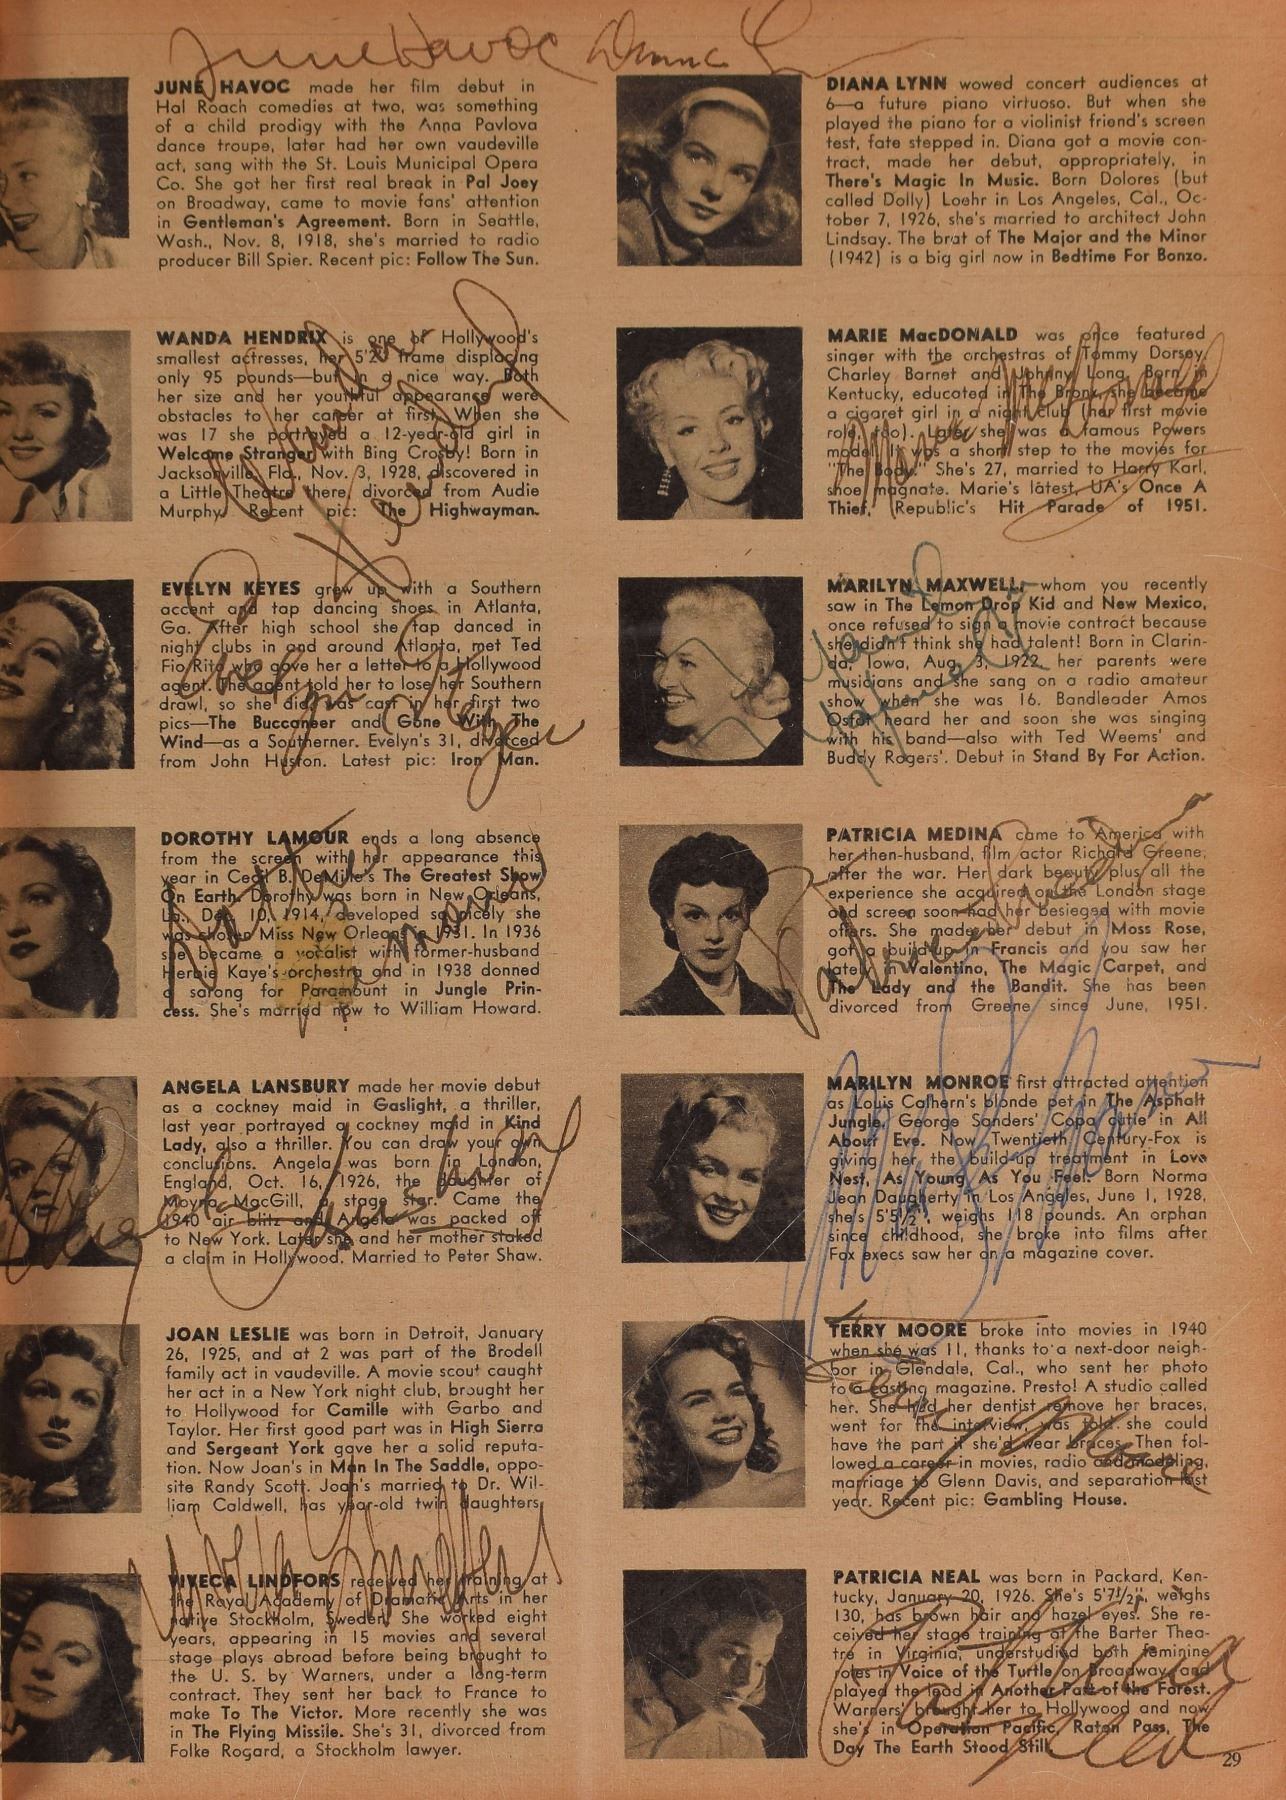 June Havoc Diana Lynn
JUNE HAVOC made her film debut in
Hal Roach comedies at two, was something
of a child prodigy with the Anna Pavlova
dance troupe, later had her own vaudeville
act, sang with the St. Louis Municipal Opera
Co. She got her first real break in Pal Joey
on Broadway, came to movie fans' attention
in Gentleman's Agreement. Born in Seattle,
Wash., Nov. 8, 1918, she's married to radio
producer Bill Spier. Recent pic: Follow The Sun.
WANDA HENDRIX is one of Hollywood's
smallest actresses, her 5'2" frame displacing
only 95 pounds—but in a nice way. Both
her size and her youthful appearance were
obstacles to her career at first. When she
was 17 she portrayed a 12-year-old girl in
Welcome Stranger with Bing Crosby! Born in
Jacksonville, Fla., Nov. 3, 1928, discovered in
a Little Theatre there, divorced from Audie
Murphy. Recent pic: The Highwayman.
Wanda Hendrix
EVELYN KEYES grew up with a Southern
accent and tap dancing shoes in Atlanta,
Ga. After high school she tap danced in
night clubs in and around Atlanta, met Ted
Fio Rito who gave her a letter to a Hollywood
agent. The agent told her to lose her Southern
drawl, so she did, was cast in her first two
pics—The Buccaneer and Gone With The
Wind—as a Southerner. Evelyn's 31, divorced
from John Huston. Latest pic: Iron Man.
Evelyn Keyes
DOROTHY LAMOUR ends a long absence
from the screen with her appearance this
year in Cecil B. DeMille's The Greatest Show
On Earth. Dorothy was born in New Orleans,
La., Dec. 10, 1914, developed so nicely she
was chosen Miss New Orleans in 1931. In 1936
she became a vocalist with former-husband
Herbie Kaye's orchestra and in 1938 donned
a sarong for Paramount in Jungle Prin-
cess. She's married now to William Howard.
Dorothy Lamour
ANGELA LANSBURY made her movie debut
as a cockney maid in Gaslight, a thriller,
last year portrayed a cockney maid in Kind
Lady, also a thriller. You can draw your own
conclusions. Angela was born in London,
England, Oct. 16, 1926, the daughter of
Moyna MacGill, a stage star. Came the
1940 air blitz and Angela was packed off
to New York. Later she and her mother staked
a claim in Hollywood. Married to Peter Shaw.
Angela Lansbury
JOAN LESLIE was born in Detroit, January
26, 1925, and at 2 was part of the Brodell
family act in vaudeville. A movie scout caught
her act in a New York night club, brought her
to Hollywood for Camille with Garbo and
Taylor. Her first good part was in High Sierra
and Sergeant York gave her a solid reputa-
tion. Now Joan's in Man In The Saddle, oppo-
site Randy Scott. Joan's married to Dr. Wil-
liam Caldwell, has year-old twin daughters.
Viveca Lindfors
VIVECA LINDFORS received her training at
the Royal Academy of Dramatic Arts in her
native Stockholm, Sweden. She worked eight
years, appearing in 15 movies and several
stage plays abroad before being brought to
the U. S. by Warners, under a long-term
contract. They sent her back to France to
make To The Victor. More recently she was
in The Flying Missile. She's 31, divorced from
Folke Rogard, a Stockholm lawyer.
DIANA LYNN wowed concert audiences at
6—a future piano virtuoso. But when she
played the piano for a violinist friend's screen
test, fate stepped in. Diana got a movie con-
tract, made her debut, appropriately, in
There's Magic In Music. Born Dolores (but
called Dolly) Loehr in Los Angeles, Cal., Oc-
tober 7, 1926, she's married to architect John
Lindsay. The brat of The Major and the Minor
(1942) is a big girl now in Bedtime For Bonzo.
MARIE MacDONALD was once featured
singer with the orchestras of Tommy Dorsey,
Charley Barnet and Johnny Long. Born in
Kentucky, educated in The Bronx, she became
a cigaret girl in a night club (her first movie
role, too). Later she was a famous Powers
model. It was a short step to the movies for
"The Body." She's 27, married to Harry Karl,
shoe magnate. Marie's latest, UA's Once A
Thief, Republic's Hit Parade of 1951.
Marie McDonald
MARILYN MAXWELL, whom you recently
saw in The Lemon Drop Kid and New Mexico,
once refused to sign a movie contract because
she didn't think she had talent! Born in Clarin-
da, Iowa, Aug. 3, 1922, her parents were
musicians and she sang on a radio amateur
show when she was 16. Bandleader Amos
Ostot heard her and soon she was singing
with his band—also with Ted Weems' and
Buddy Rogers'. Debut in Stand By For Action.
Marilyn Maxwell
PATRICIA MEDINA came to America with
her then-husband, film actor Richard Greene,
after the war. Her dark beauty plus all the
experience she acquired on the London stage
and screen soon had her besieged with movie
offers. She made her debut in Moss Rose,
got a build-up in Francis and you saw her
later in Valentino, The Magic Carpet, and
The Lady and the Bandit. She has been
divorced from Greene since June, 1951.
Patricia Medina
MARILYN MONROE first attracted attention
as Louis Calhern's blonde pet in The Asphalt
Jungle, George Sanders' Copa cutie in All
About Eve. Now Twentieth Century-Fox is
giving her the build-up treatment in Love
Nest, As Young As You Feel. Born Norma
Jean Daugherty in Los Angeles, June 1, 1928,
she's 5'5½", weighs 118 pounds. An orphan
since childhood, she broke into films after
Fox execs saw her on a magazine cover.
Marilyn Monroe
TERRY MOORE broke into movies in 1940
when she was 11, thanks to a next-door neigh-
bor in Glendale, Cal., who sent her photo
to a casting magazine. Presto! A studio called
her. She had her dentist remove her braces,
went for the interview, was told she could
have the part if she'd wear braces. Then fol-
lowed a career in movies, radio and modeling,
marriage to Glenn Davis, and separation last
year. Recent pic: Gambling House.
Terry Moore
PATRICIA NEAL was born in Packard, Ken-
tucky, January 20, 1926. She's 5'7½", weighs
130, has brown hair and hazel eyes. She re-
ceived her stage training at the Barter Thea-
tre in Virginia, understudied both feminine
roles in Voice of the Turtle on Broadway and
played the lead in Another Part of the Forest.
Warners' brought her to Hollywood and now
she's in Operation Pacific, Raton Pass, The
Day The Earth Stood Still.
Patricia Neal
29